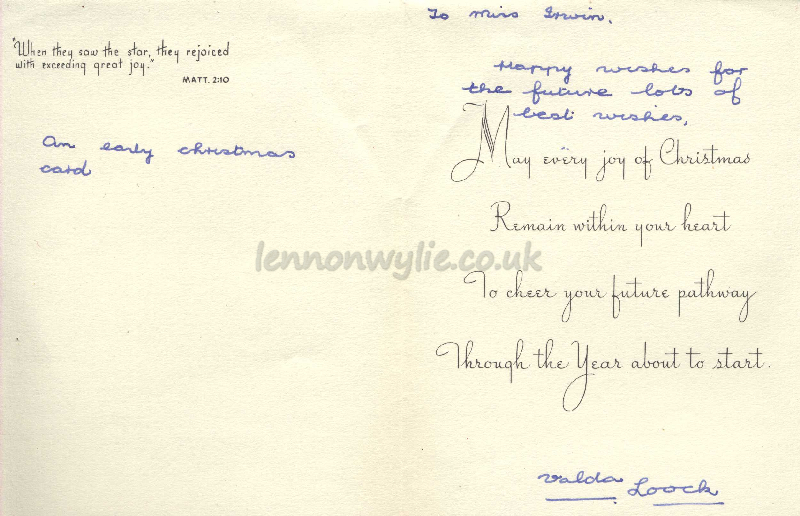 "When they saw the star, they rejoiced
with exceeding great joy."
MATT. 2:10
An early christmas
card
To Miss Irwin.
Happy wishes for
the future lots of
best wishes,
May every joy of Christmas
Remain within your heart
To cheer your future pathway
Through the Year about to start.
Valda Loock
lennonwylie.co.uk